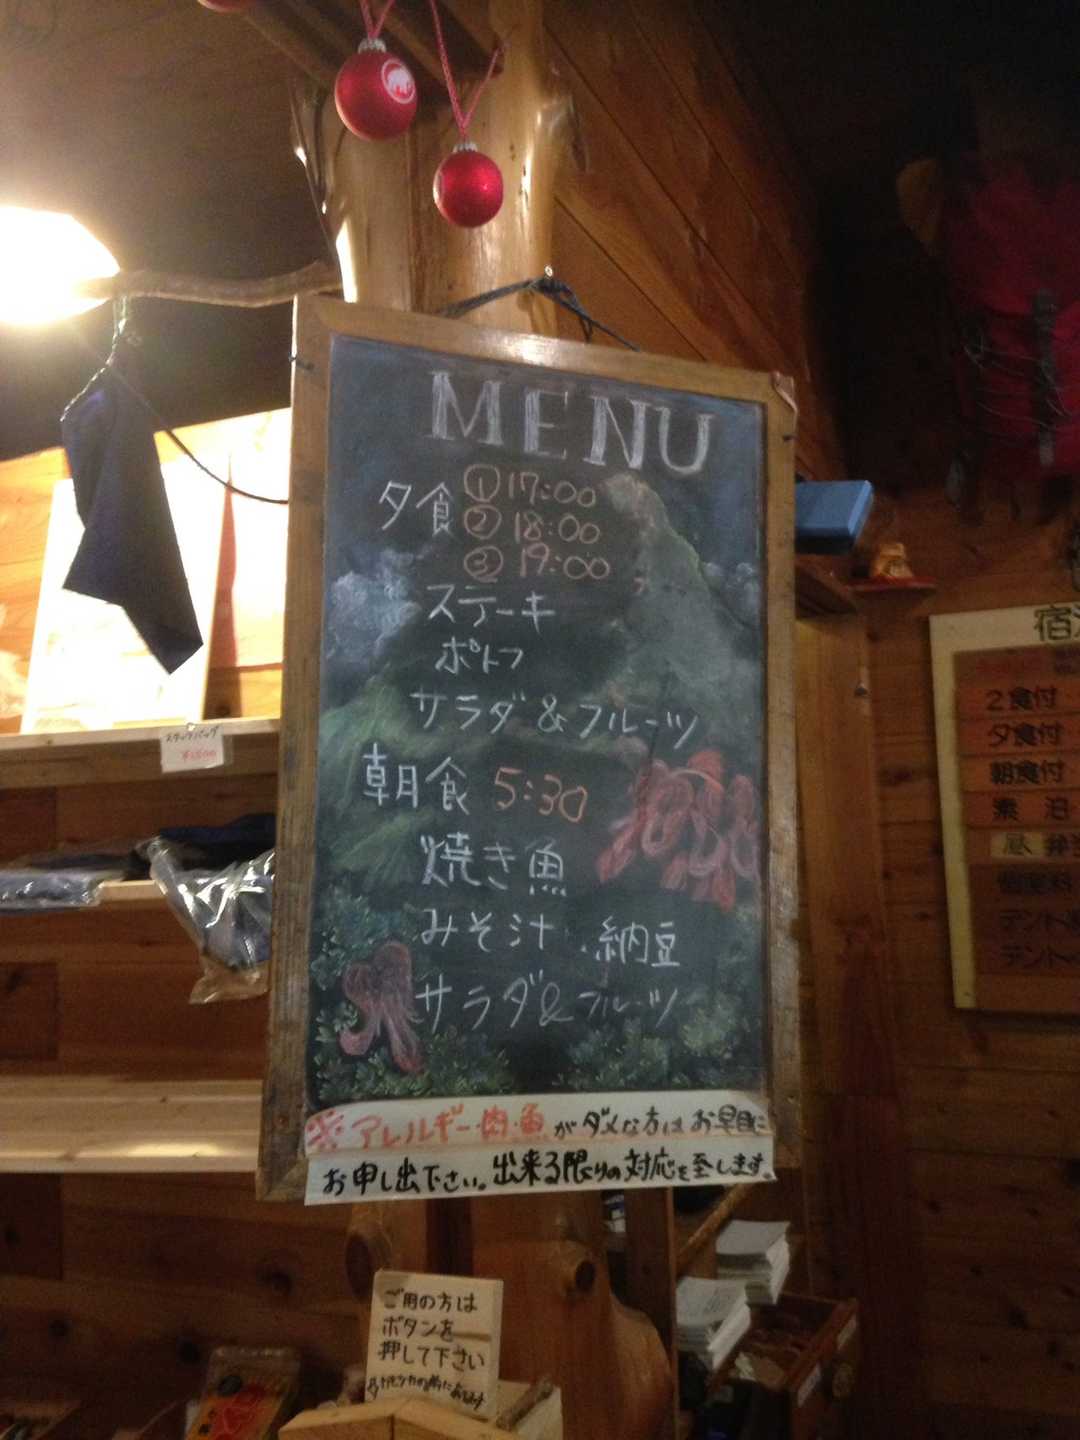 MENU
夕食 ①17:00
②18:00
③19:00
ステーキ
ポトフ
サラダ&フルーツ
朝食 5:30
焼き魚
みそ汁・納豆
サラダ&フルーツ
※アレルギー・肉・魚がダメな方はお早目に
お申し出下さい。出来る限りの対応を至します。
ご用の方は
ボタンを
押して下さい
スタッフバッグ
2食付
夕食付
朝食付
素泊
昼 弁当
個室料
テント
テント